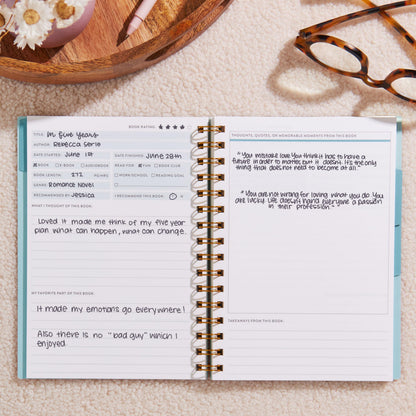 BOOK RATING: ★ ★ ★ ★
TITLE: In Five Years
AUTHOR: Rebecca Serle
DATE STARTED: June 1st DATE FINISHED: June 28th
BOOK E-BOOK AUDIOBOOK READ FOR: FUN BOOK CLUB
BOOK LENGTH: 272 PG/HRS WORK/SCHOOL READING GOAL
GENRE: Romance Novel
RECOMMENDED BY: Jessica I RECOMMEND THIS BOOK: Y N
WHAT I THOUGHT OF THIS BOOK:
Loved it made me think of my five year
plan what can happen, what can change.
MY FAVORITE PART OF THIS BOOK:
It made my emotions go everywhere!
Also there is no "bad guy" which I
enjoyed.
THOUGHTS, QUOTES, OR MEMORABLE MOMENTS FROM THIS BOOK:
"You mistake love. You think it has to have a
future in order to matter, but it doesn't. It's the only
thing that does not need to become at all."
"You are not wrong for loving what you do. You
are lucky. Life doesn't hand everyone a passion
in their profession."
TAKEAWAYS FROM THIS BOOK: